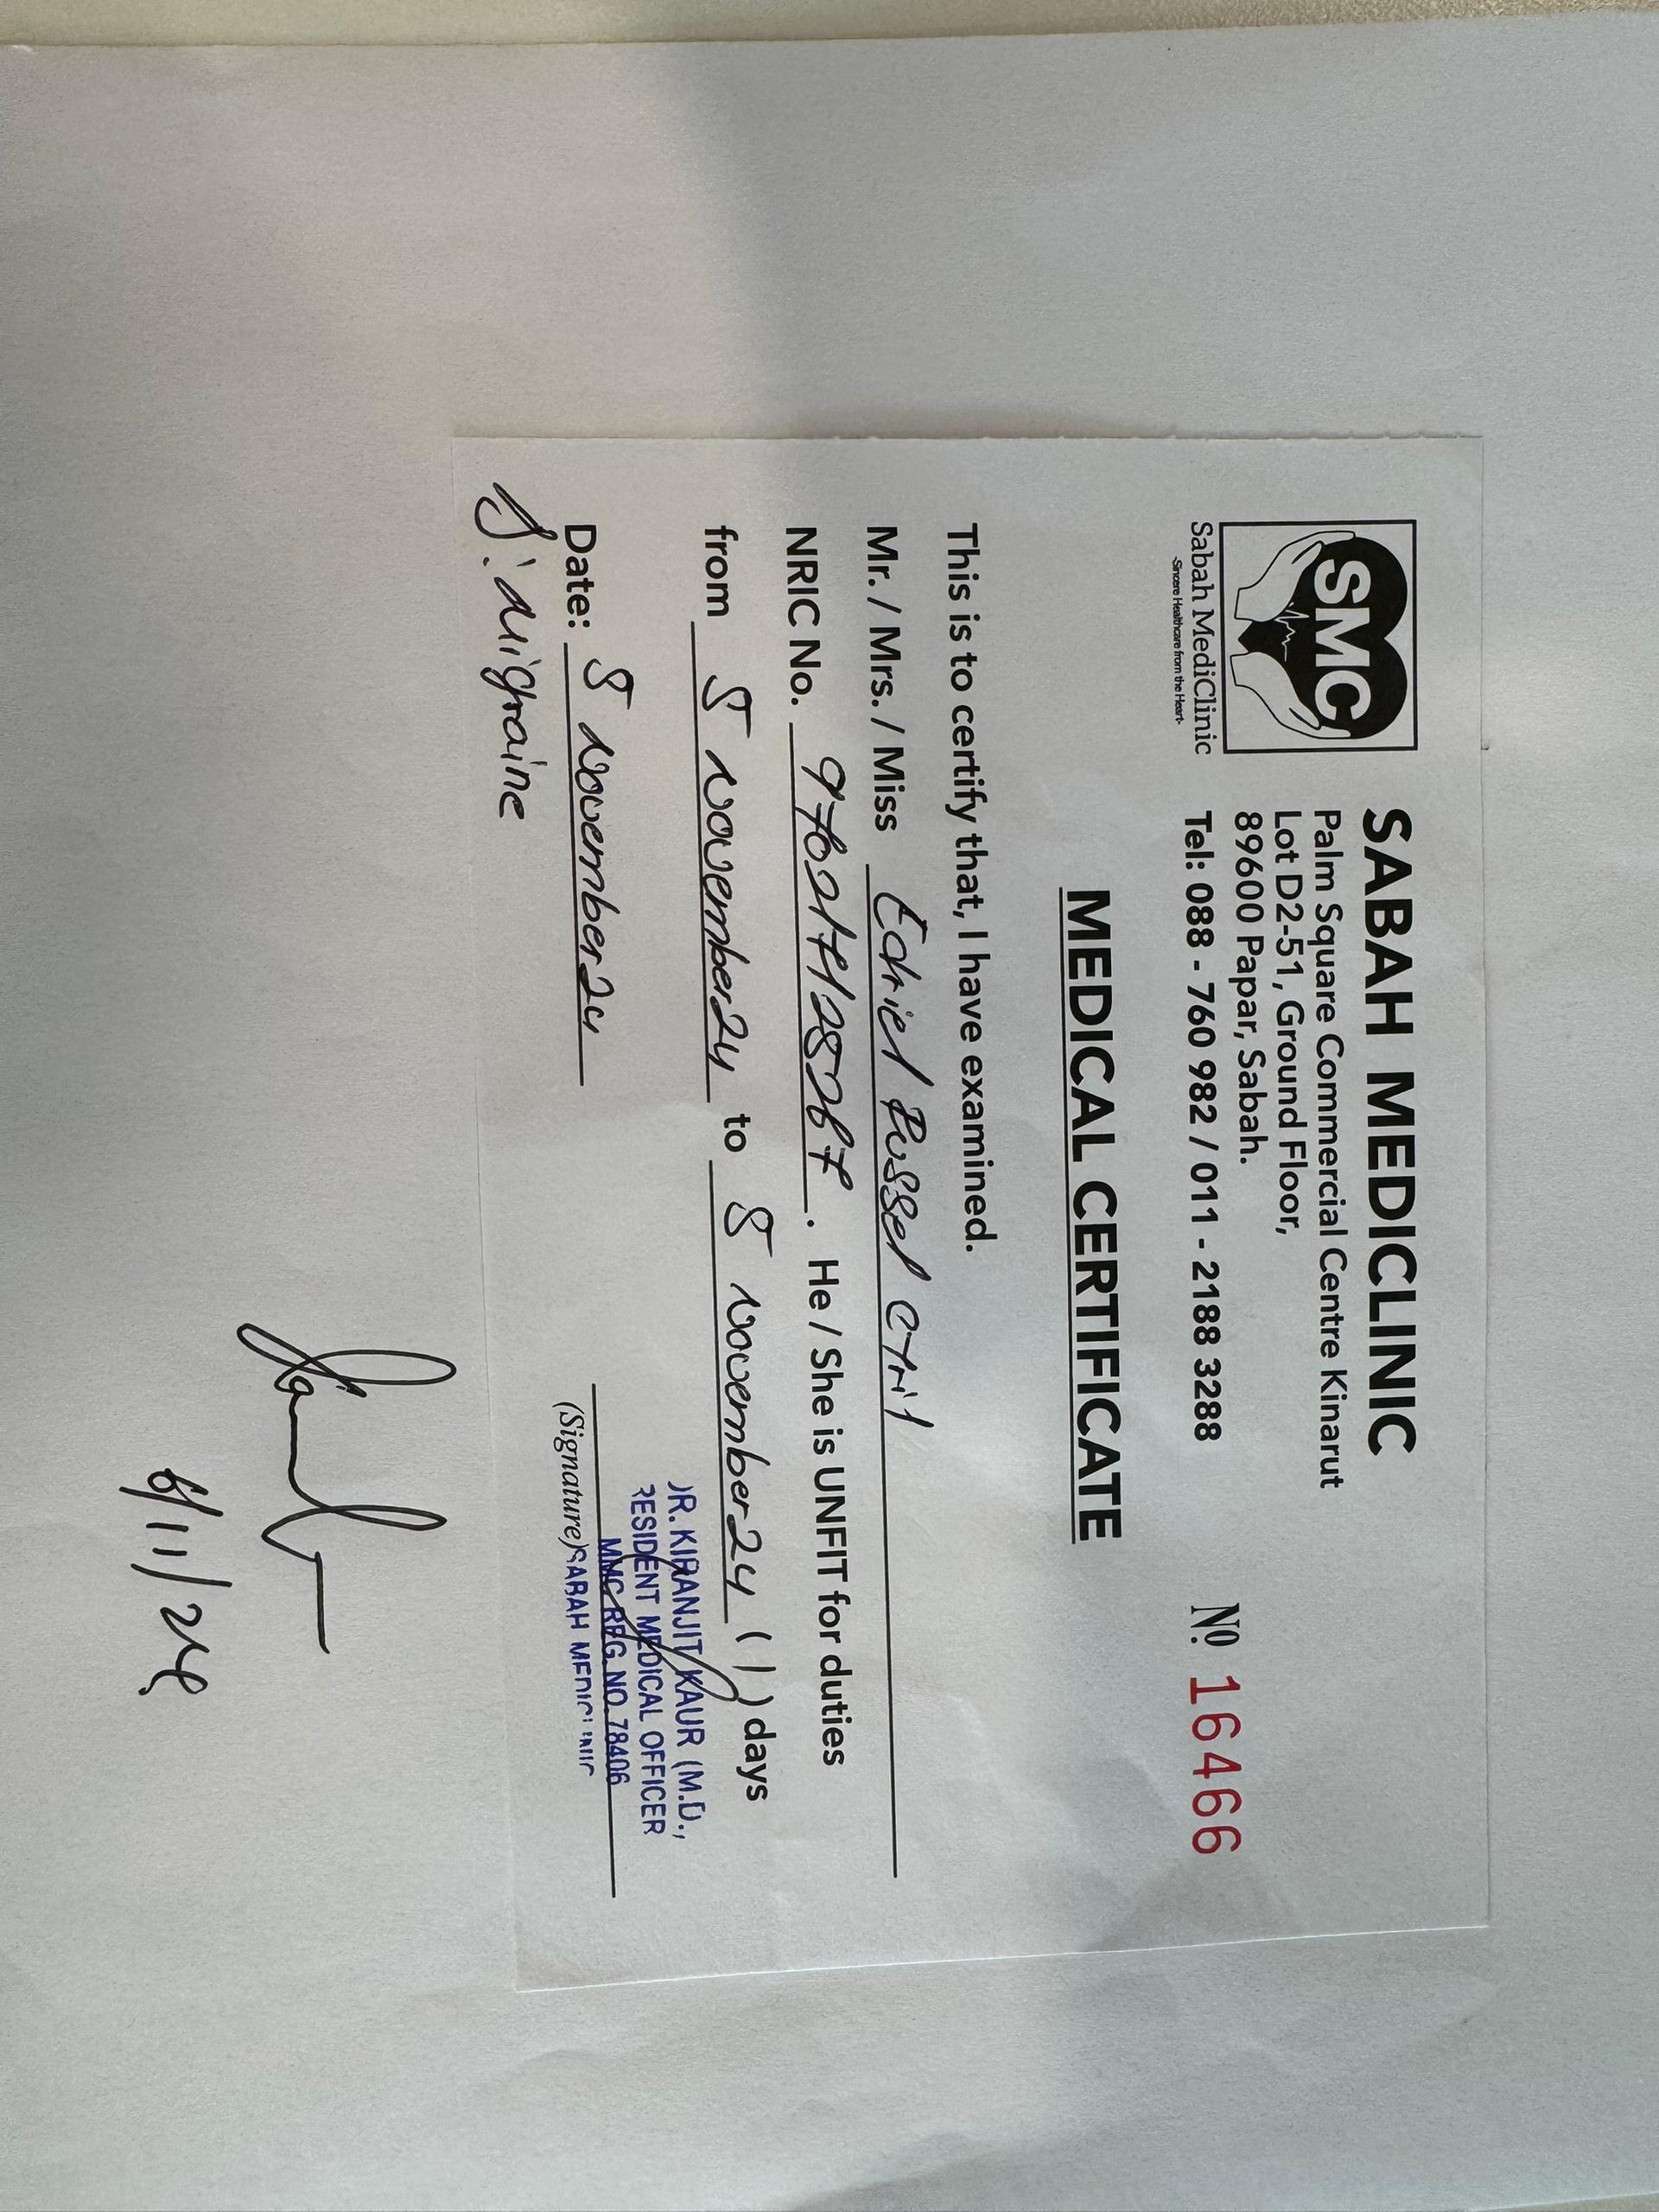 SMC
Sabah MediClinic
-Sincere Healthcare from the Heart-
SABAH MEDICLINIC
Palm Square Commercial Centre Kinarut
Lot D2-51, Ground Floor,
89600 Papar, Sabah.
Tel: 088 - 760 982 / 011 - 2188 3288
Nº 16466
MEDICAL CERTIFICATE
This is to certify that, I have examined.
Mr. / Mrs. / Miss Edriel Russel Cyril
NRIC No. 970217125267. He / She is UNFIT for duties
from 5 November 24 to 5 November 24 (1) days
DR. KIRANJIT KAUR (M.D.,
RESIDENT MEDICAL OFFICER
MMC REG. NO. 78406
Date: 5 November 24
(Signature) SABAH MEDICLINIC
Δ: Migraine
6/11/24